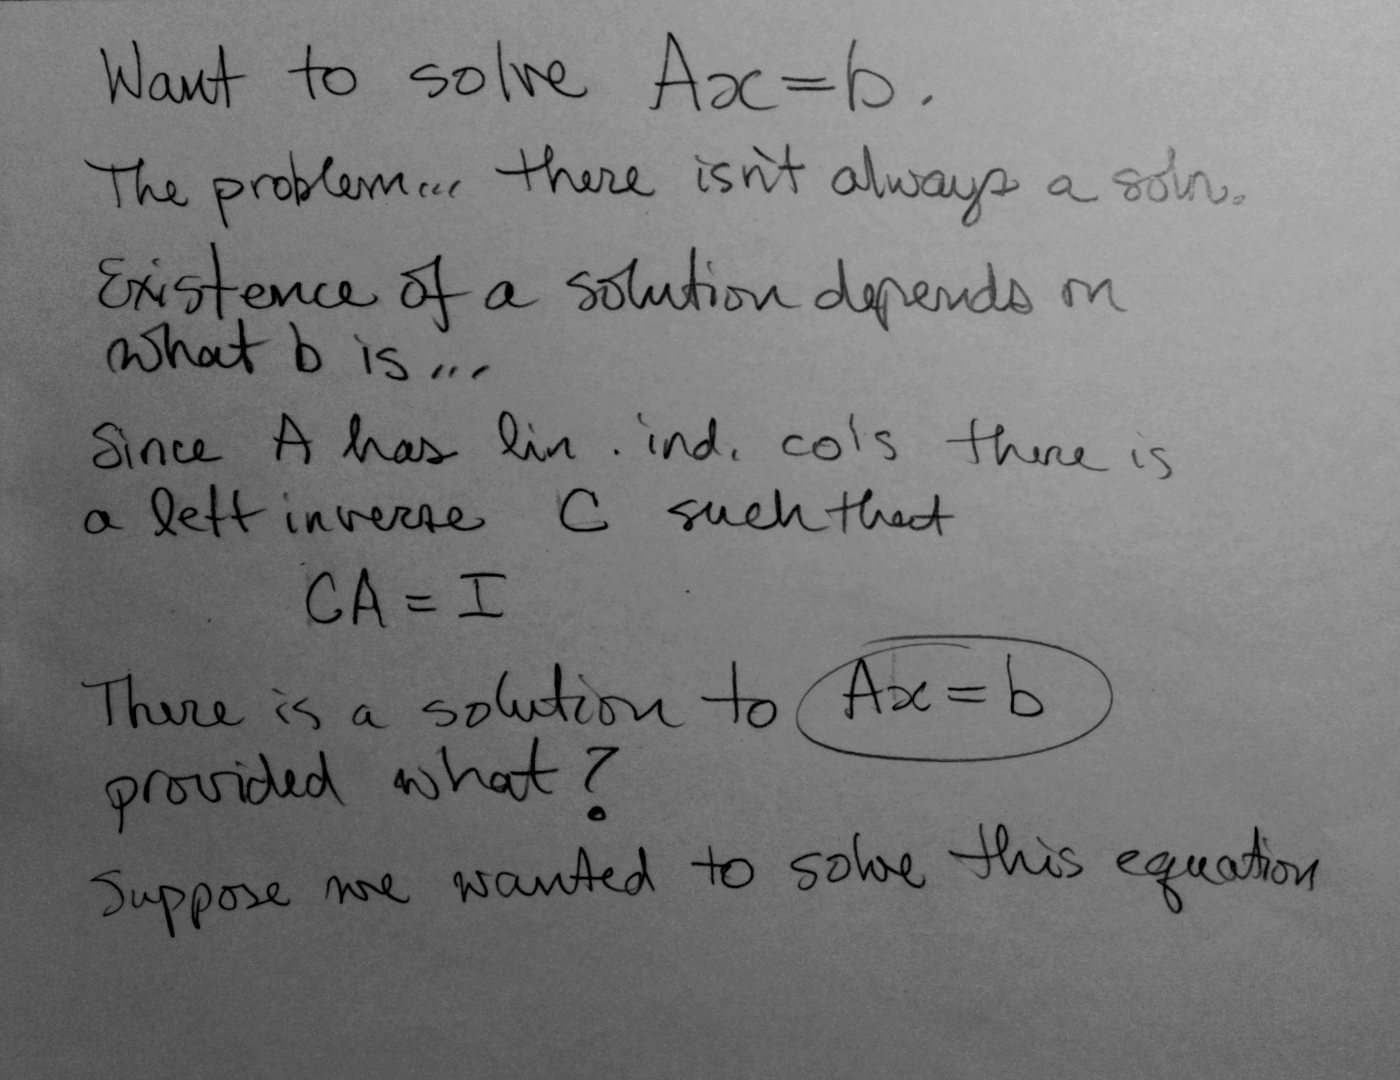 Want to solve Ax=b.
The problem... there isn't always a soln.
Existence of a solution depends on
what b is...
Since A has lin. ind. col's there is
a left inverse C such that
CA = I
There is a solution to Ax=b
provided what?
Suppose we wanted to solve this equation